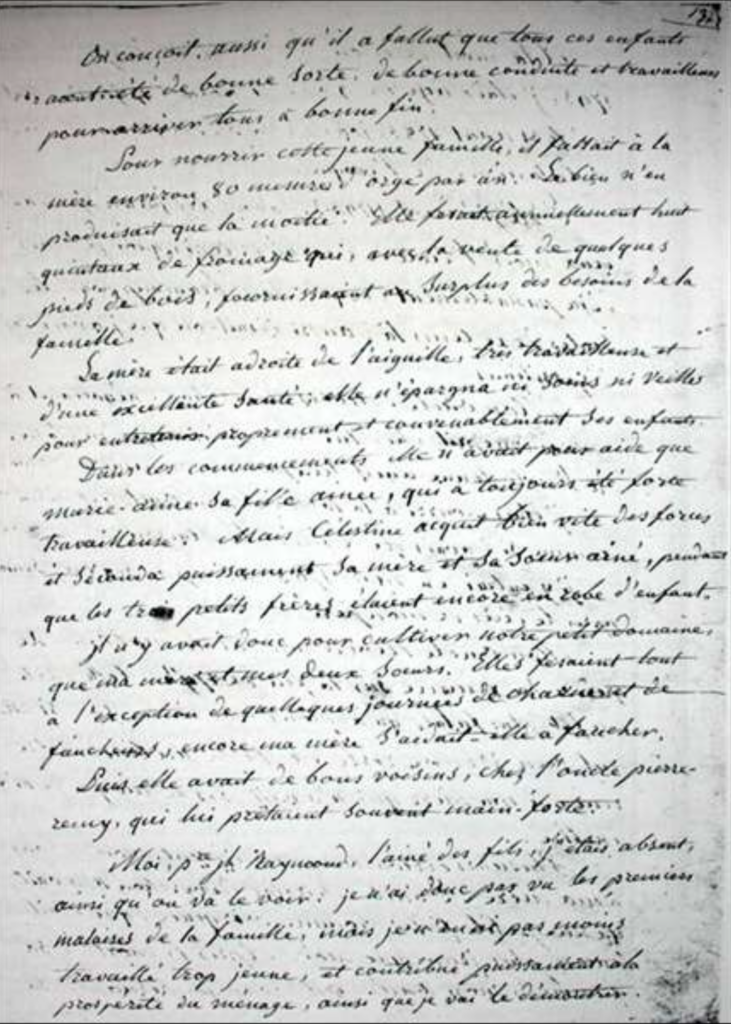 On conçoit, aussi qu'il a fallut que tous ces enfants
aent été de bonne sorte, de bonne conduite et travailleurs
pour arriver tous à bonne fin.
Pour nourrir cette jeune famille, il fallait à la
mère environ 80 mesures d'orge par an. Le bien n'en
produisait que la moitié. Elle ferait annuellement huit
quintaux de fromage qui, avec la vente de quelques
pieds de bois, fournissaient au surplus des besoins de la
famille.
La mère était adroite de l'aiguille, très travailleuse et
d'une excellente santé; elle n'épargna ni soins ni veilles
pour entretenir proprement et convenablement ses enfants.
Dans les commencements elle n'avait pour aide que
marie-anne sa fille ainée, qui a toujours été forte
travailleuse. Mais Célestine acquit bien vite des forces
et séconda puissament sa mère et sa soeur ainé, pendant
que les trois petits frères étaient encore en robe d'enfant.
jl n'y avait donc pour cultiver notre petit domaine,
que ma mère et mes deux soeurs. Elles fesaient tout
à l'exception de quellaques journées de et de
faucheurs, encore ma mère s'aidait-elle à faucher.
Puis, elle avait de bons voisins, chez l'oncle pierre-
remy, qui lui prêtaient souvent main-forte.
Moi, pre jh Raymond, l'ainé des fils, j'étais absent,
ainsi qu'on va le voir: je n'ai donc pas vu les premiers
malaises de la famille, mais je n'en ai pas moins
travaillé trop jeune, et contribué puissament à la
prospérité du ménage, ainsi que je vai le démontrer.